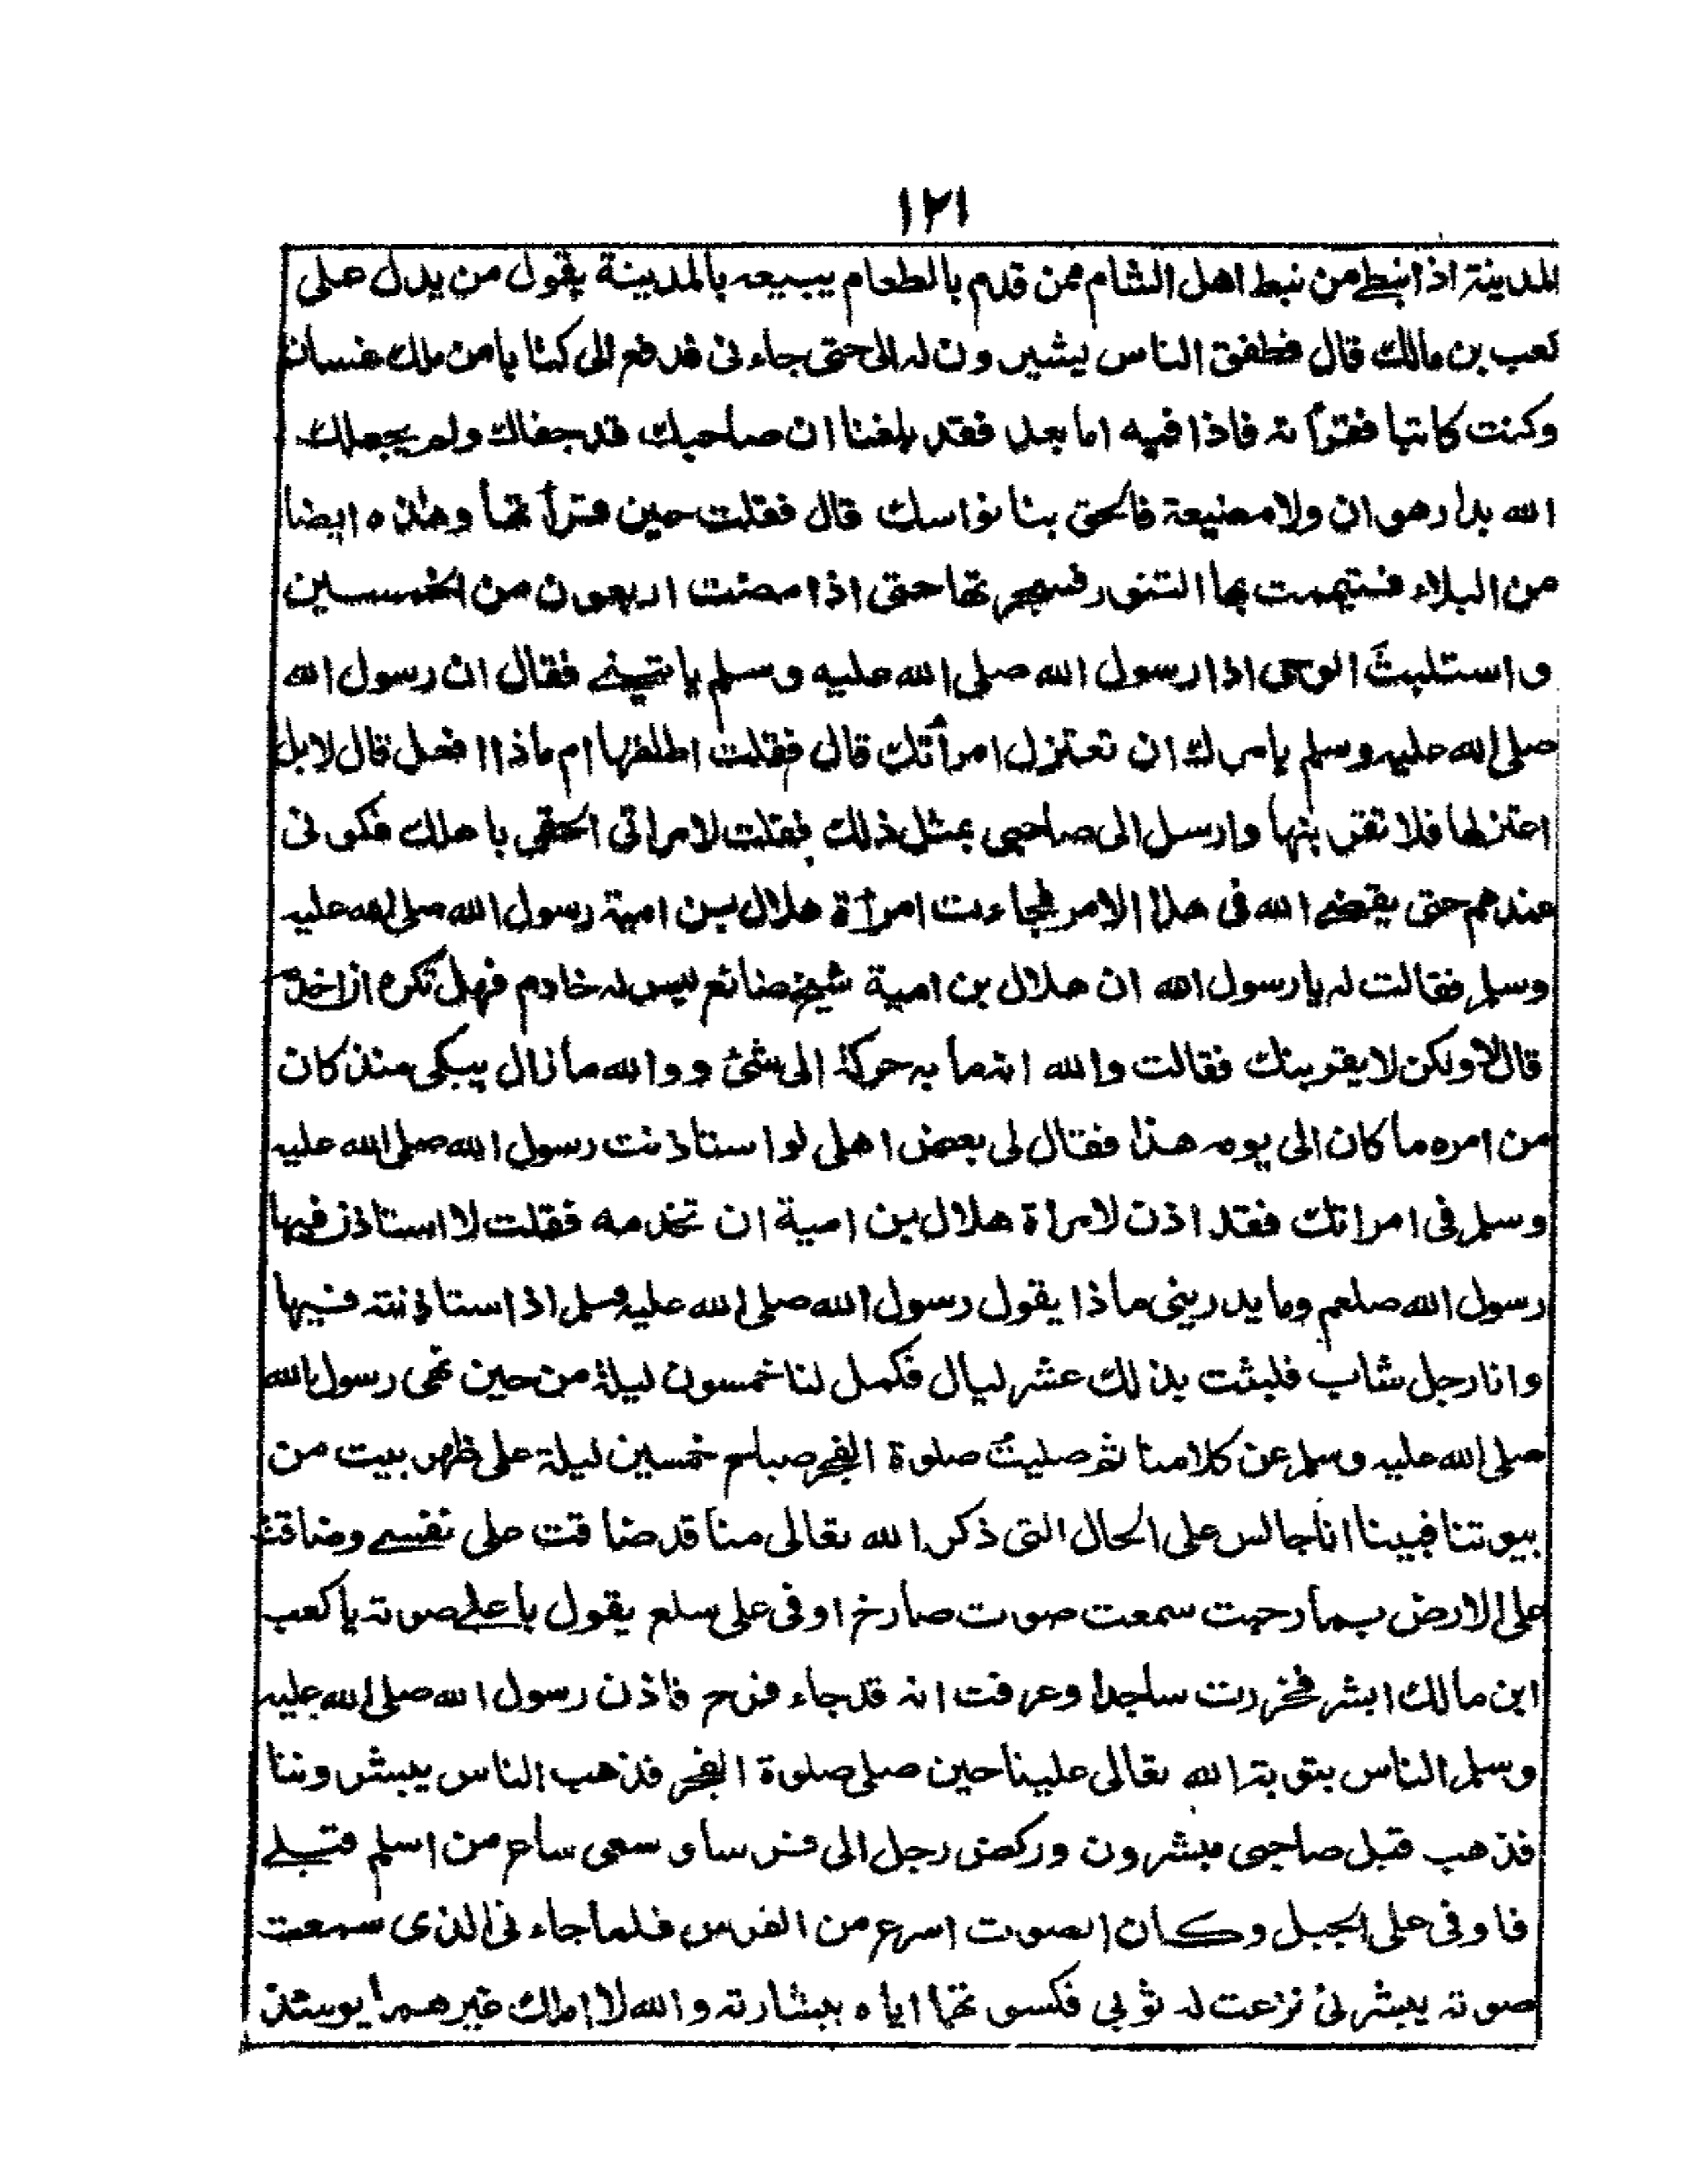 ۱۲۱
المدينة اذا نبطى من نبط اهل الشام ممن قدم بالطعام يبيعه بالمدينة يقول من يدل على
كعب بن مالك قال فطفق الناس يشيرون له الى حتى جاءنى فدفع الى كتابا من ملك غسان
وكنت كاتبا فقرأته فاذا فيه اما بعد فقد بلغنا ان صاحبك قد جفاك ولم يجعلك
الله بدار هوان ولا مضيعة فالحق بنا نواسك قال فقلت حين قرأتها وهذه ايضا
من البلاء فتيممت بها التنور فسجرتها حتى اذا مضت اربعون من الخمسين
واستلبث الوحى اذا رسول الله صلى الله عليه وسلم ياتينى فقال ان رسول الله
صلى الله عليه وسلم يامرك ان تعتزل امرأتك قال فقلت اطلقها ام ماذا افعل قال لا بل
اعتزلها فلا تقربنها وارسل الى صاحبى بمثل ذلك فقلت لامراتى الحقى باهلك فكونى
عندهم حتى يقضى الله فى هذا الامر فجاءت امرأة هلال بن امية رسول الله صلى الله عليه
وسلم فقالت له يا رسول الله ان هلال بن امية شيخ ضائع ليس له خادم فهل تكره ان اخدمه
قال لا ولكن لا يقربنك فقالت والله انه ما به حركة الى شئ ووالله ما زال يبكى منذ كان
من امره ما كان الى يومه هذا فقال لى بعض اهلى لو استاذنت رسول الله صلى الله عليه
وسلم فى امراتك فقد اذن لامراة هلال بن امية ان تخدمه فقلت لا استاذن فيها
رسول الله صلعم وما يدرينى ماذا يقول رسول الله صلى الله عليه وسلم اذا استاذنته فيها
وانا رجل شاب فلبثت بذلك عشر ليال فكمل لنا خمسون ليلة من حين نهى رسول الله
صلى الله عليه وسلم عن كلامنا ثم صليت صلوة الفجر صباح خمسين ليلة على ظهر بيت من
بيوتنا فبينا انا جالس على الحال التى ذكر الله تعالى منا قد ضاقت على نفسى وضاقت
على الارض بما رحبت سمعت صوت صارخ اوفى على سلع يقول باعلى صوته يا كعب
ابن مالك ابشر فخررت ساجدا وعرفت انه قد جاء فرح فاذن رسول الله صلى الله عليه
وسلم الناس بتوبة الله تعالى علينا حين صلى صلوة الفجر فذهب الناس يبشروننا
فذهب قبل صاحبى مبشرون وركض رجل الى فرسا وسعى ساع من اسلم قبلى
فاوفى على الجبل وكان الصوت اسرع من الفرس فلما جاءنى الذى سمعت
صوته يبشرنى نزعت له ثوبى فكسوتهما اياه ببشارته والله لا املك غيرهما يومئذ